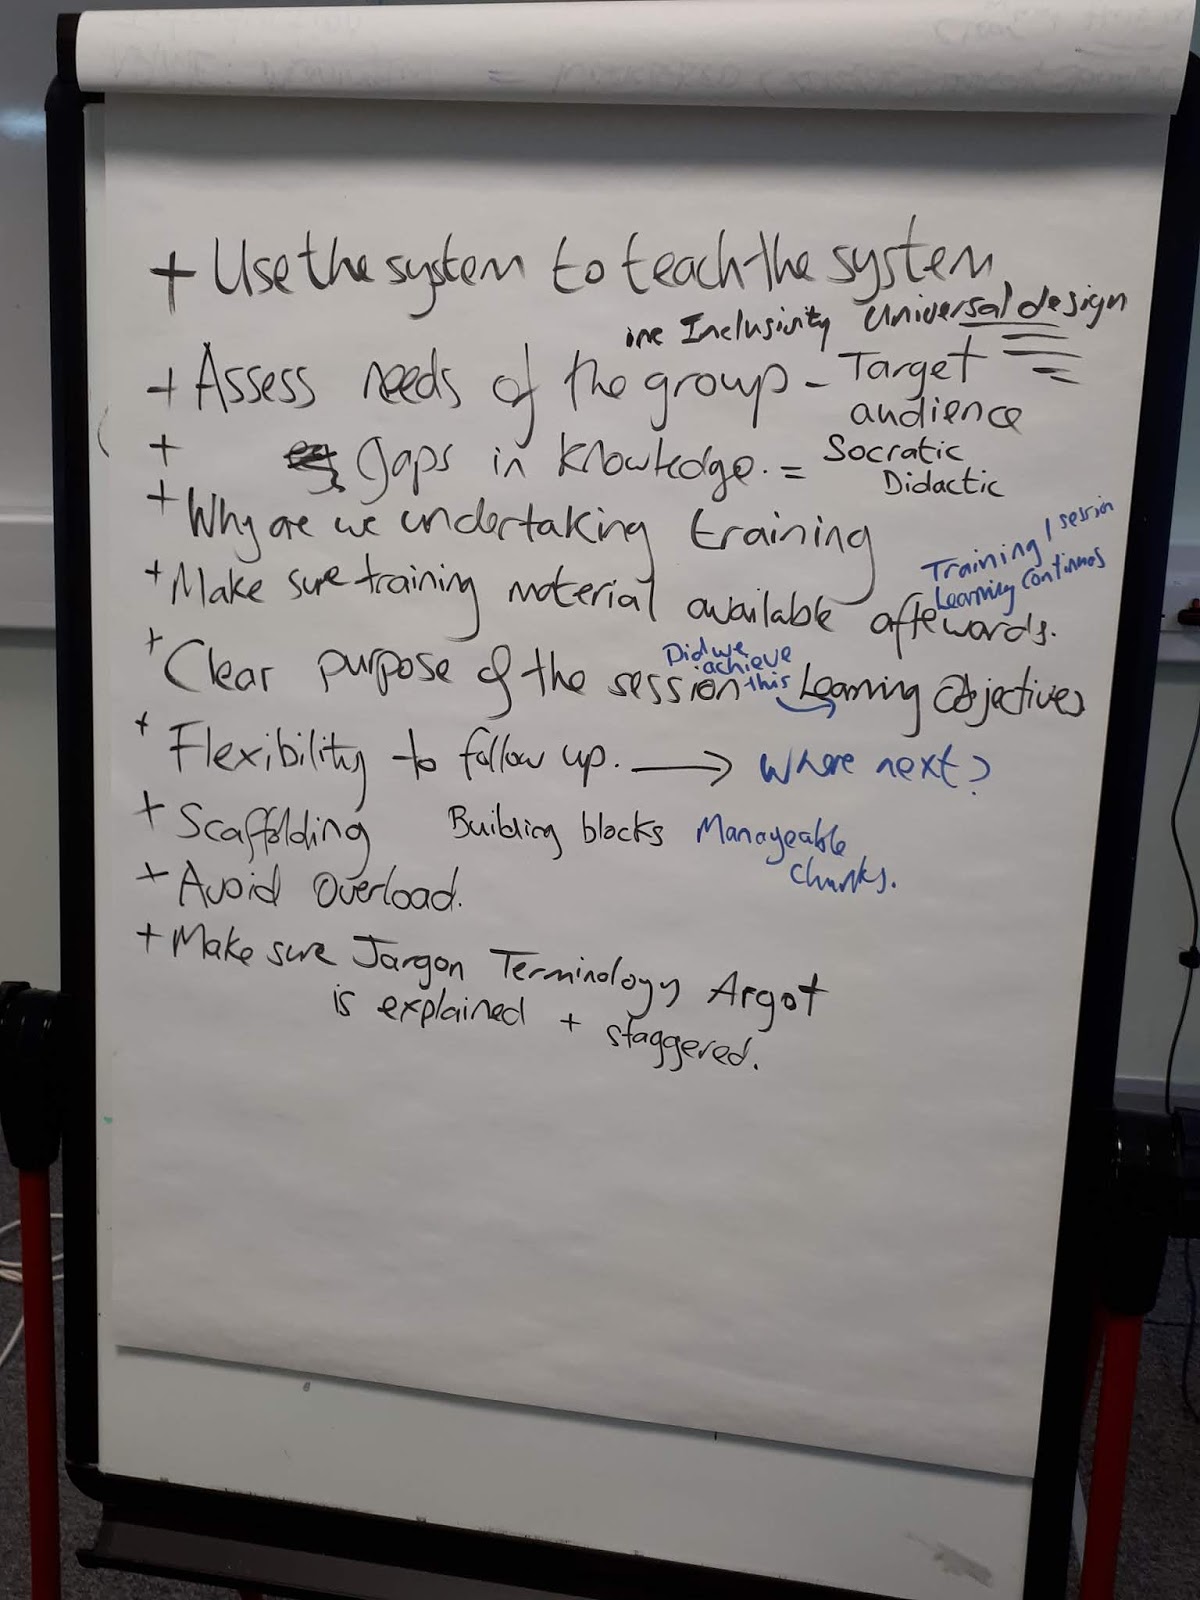 + Use the system to teach the system
inc Inclusivity Universal design
+ Assess needs of the group - Target
audience
+ gaps in knowledge. = Socratic
Didactic
+ Why are we undertaking training
Training / session
Learning continues
+ Make sure training material available aftewards.
Did we
achieve
this
+ Clear purpose of the session Learning Objectives
+ Flexibility to follow up. → Where next?
+ Scaffolding Building blocks Manageable
chunks.
+ Avoid Overload.
+ Make sure Jargon Terminology Argot
is explained + staggered.